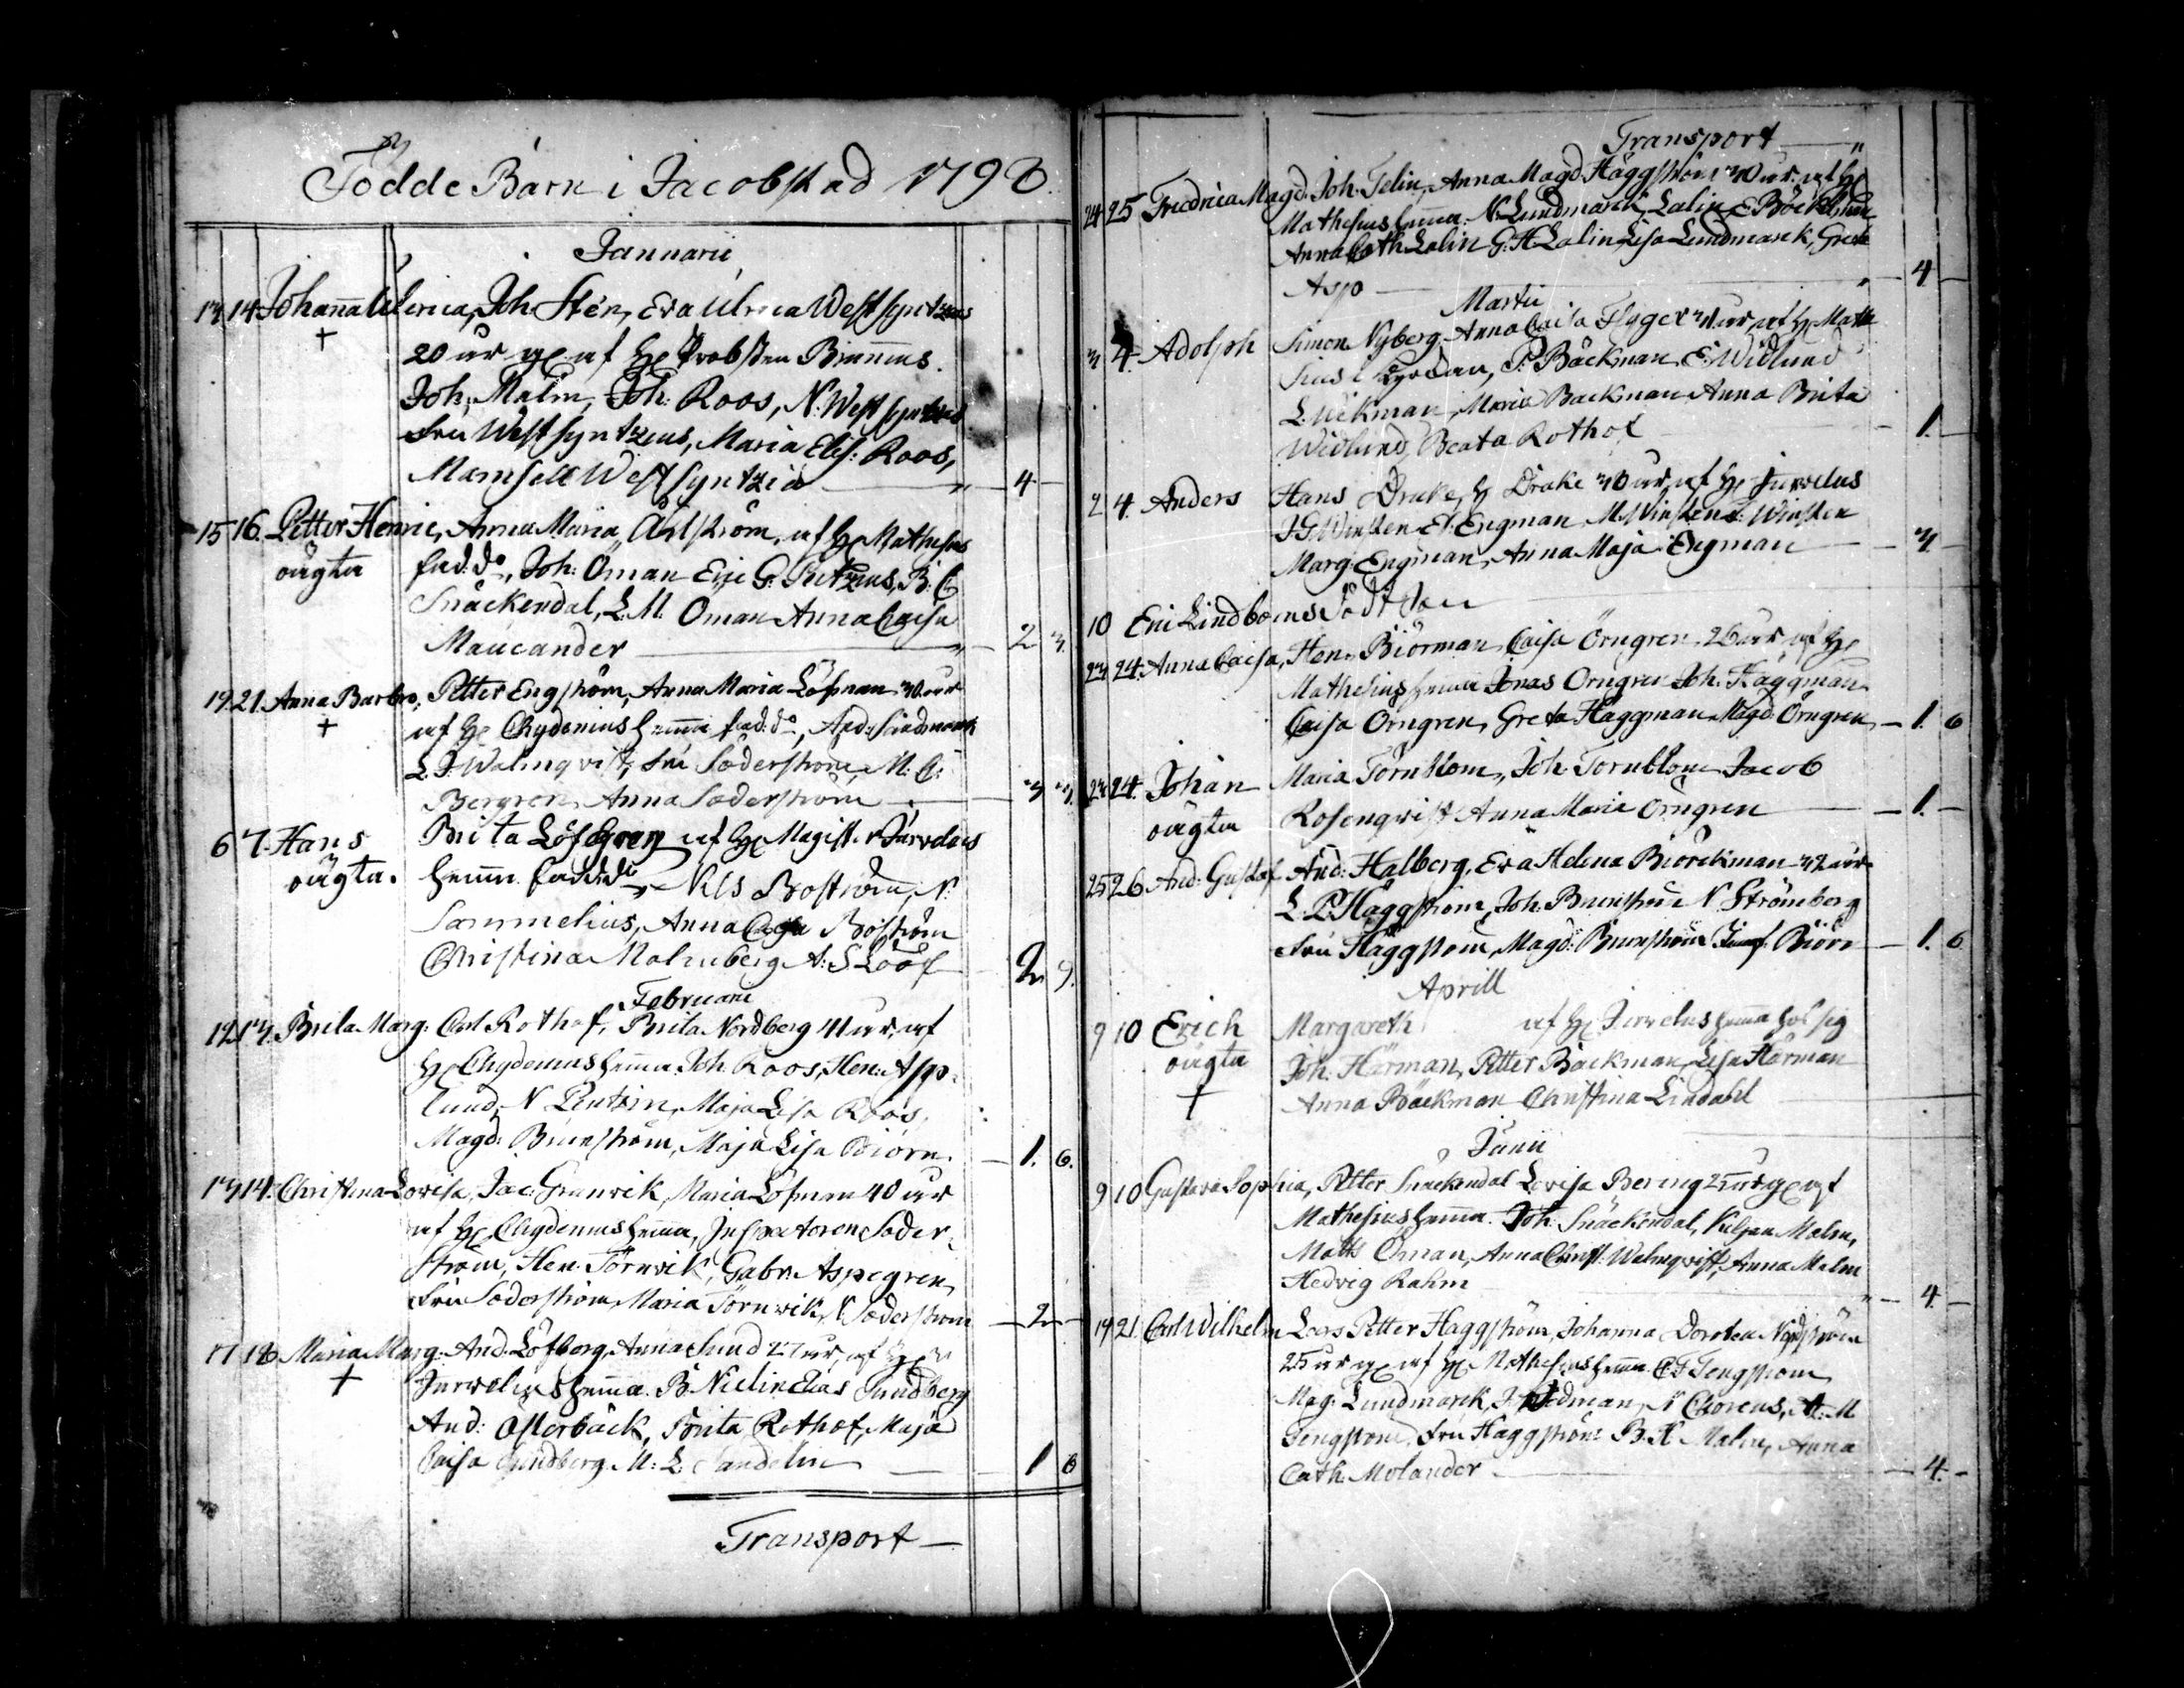 Födde Barn i Jacobstad 1798.
Januarii
13 14 Johanna Ulerica, Joh. Stén, Eva Ulrica Westsyntzius
† 20 år af H: Probsten Brunnius.
Joh: Malm, Joh: Roos, N: Westsyntzius
Fru Westsyntzius, Maria Elis: Roos,
Mamsell Westsyntzia — 4 —
15 16. Petter Henric, Anna Maria Åhlström, af H: Mathesius
oägta fad: do, Joh: Öman Eric G: B: C
Snäckendal, L. M. Öman Anna Caisa
Maucander — 2 3.
19. 21. Anna Barbro, Petter Engström, Anna Maria Löfman 30 år
† af H: Chydenius hemma fad: do, And: Lindmark
L. J. Walmqvist, Fru Söderström, M: C:
Bergren, Anna Söderström — 3 3.
6 7. Hans Brita Löfgren af H: Magist: Jurvelius
oägta. hemm. fad: do, Nils Boström, N:
Sammelius, Anna Caisa Boström
Christina Malmberg A: S Lööf — 2 9.
Februarii
12. 13. Brita Marg: Carl Rothof, Brita Nordberg 41 år, af
H: Chydenius hemma. Joh. Roos, Hen: Asp-
lund, N Pentzin, Maja Lisa Roos,
Magd: Brunström, Maja Lisa Biörn. — 1. 6.
13 14. Christina Lovisa, Jac: Granvik, Maria Löfman 40 år
af H: Chydenius hemma, Inspectoren Söder-
ström, Hen: Törnvik, Gabr: Aspegren,
Fru Söderström, Maria Törnvik, N Söderström — 2 —
17 18 Maria Marg: And. Löfberg, Anna Lund 27 år, af H:
† Jurvelius hemma. B. Nielin Elias Sundberg
And: Österbäck, Brita Rothof, Maja
Caisa Sundberg. M: L: Sandelin — 1 6
Transport —
Transport — "
24 25 Fredrica Magd: Joh: Telin, Anna Magd: Häggström 30 år. af H:
Mathesius hemma. N: Lundmarck, Lalin, E Böckelman
Anna Cath Lalin G: H Lalin Lisa Lundmarck, Greta
Asp — 4 —
Martii
3 4. Adolph Simon Nyberg Anna Caisa Flyger 31 år, af H: Mathe
sius i Kyrckan, P. Bäckman E: Widlund
L. Wickman, Maria Backman Anna Brita
Widlund, Beata Rothof — 1. —
2 4. Anders Hans Drake, H Drake 30 år, af H: Jurvelius
J. G. Winsten E: Engman M. Winsten Winsten
Marg: Engman, Anna Maja Engman — 3. —
10 Eric Lindboms
23 24. Anna Caisa, Hen: Biörman Caisa Örngren. 26 år af H:
Mathesius hemma Jonas Örngren Joh. Häggman
Caisa Örngren, Greta Häggman Magd: Örngren — 1. 6
23 24. Johan Maria Törnblom, Joh: Tornblom Jacob
oägta Rosenqvist Anna Maria Örngren — 1. —
25 26 And: Gustaf And: Halberg, Eva Helena Biörckman 32 år.
L. P. Häggström, Joh. Brunström N: Strömberg
Fru Häggström, Magd: Brunström Jungf. Biörn — 1. 6
Aprill
9 10 Erich Margareth af H: Jurvelius hemma hos sig
oägta Joh: Härman, Petter Bäckman Lisa Härman
† Anna Bäckman Christina Lindahl
Junii
9 10 Gustava Sophia, Petter Snäckendal Lovisa Bering 25 år af
Mathesius hemma. Joh: Snäckendal, Kiljan Malm,
Matts Öman, Anna Christ: Walmqvist, Anna Malm
Hedvig Rahm — 4 —
19 21. Carl Wilhelm Lars Petter Häggström, Johanna Dorotea Nordström
25 år af H: Mathesius hemma C. F. Tengström
Mag: Lundmarck, J. Edman, N Choreus, A. M
Tengström. Fru Häggström B. H. Malm, Anna
Cath: Molander — 4. —